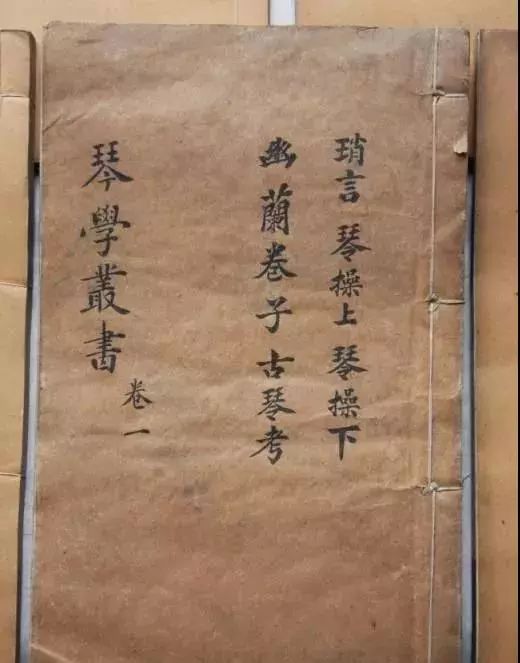 瑣言 琴操上 琴操下
幽蘭卷子古琴考
琴學叢書 卷一